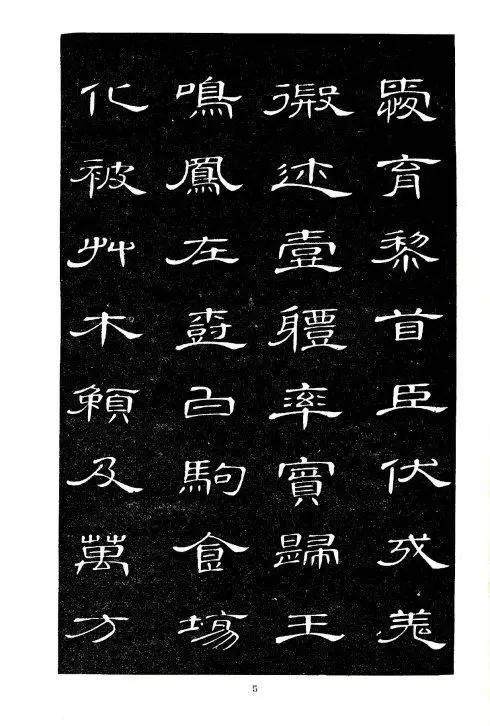 愛育黎首臣伏戎羌
徦迩壹體率賓歸王
鳴鳳在樹白駒食場
化被艸木賴及萬方
5